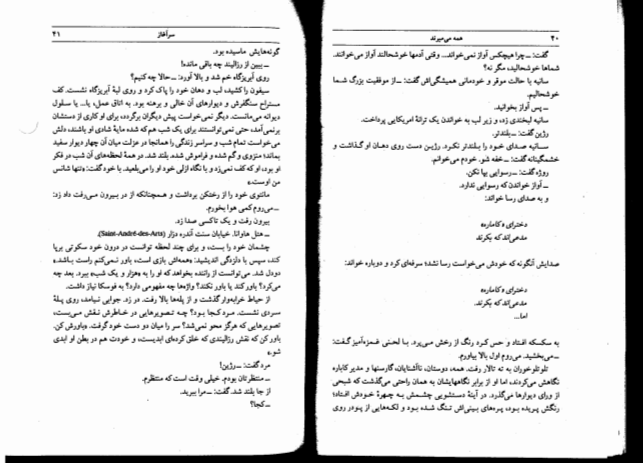 ۴۰ همه می‌میرند
گفت: ــ چرا هیچکس آواز نمی‌خواند... وقتی آدمها خوشحالند آواز می‌خوانند.
شماها خوشحالید، مگر نه؟
سانیه با حالت موقر و خودمانی همیشگی‌اش گفت: ــ از موفقیت بزرگ شما
خوشحالیم.
ــ پس آواز بخوانید.
سانیه لبخندی زد، و زیر لب به خواندن یک ترانهٔ امریکایی پرداخت.
رژین گفت: ــ بلندتر.
سانیه صدای خود را بلندتر نکرد. رژین دست روی دهان او گذاشت و
خشمگینانه گفت: ــ خفه شو. خودم می‌خوانم.
روژه گفت: ــ رسوایی بپا نکن.
ــ آواز خواندن که رسوایی ندارد.
و به صدای رسا خواند:
دخترای «کاماره»
مدعی‌اند که بکرند
صدایش آنگونه که خودش می‌خواست رسا نشد؛ سرفه‌ای کرد و دوباره خواند:
دخترای «کاماره»
مدعی‌اند که بکرند.
اما...
به سکسکه افتاد و حس کرد رنگ از رخش می‌پرد. با لحنی غمزه‌آمیز گفت:
ــ می‌بخشید. می‌روم اول بالا بیاورم.
تلوتلوخوران به ته تالار رفت. همه، دوستان، ناآشنایان، گارسنها و مدیر کاباره
نگاهش می‌کردند، اما او از برابر نگاههایشان به همان راحتی می‌گذشت که شبحی
از ورای دیوارها می‌گذرد. در آینهٔ دستشویی چشمش به چهرهٔ خودش افتاد؛
رنگش پریده بود، پره‌های بینی‌اش تنگ شده بود و لکه‌هایی از پودر روی
سرآغاز ۴۱
گونه‌هایش ماسیده بود.
ــ ببین از رزالیند چه باقی مانده!
روی آبریزگاه خم شد و بالا آورد: ــ حالا چه کنیم؟
سیفون را کشید، لب و دهان خود را پاک کرد و روی لبهٔ آبریزگاه نشست. کف
مستراح سنگفرش و دیوارهای آن خالی و برهنه بود. به اتاق عمل، یا... یا سلول
دیوانه می‌مانست. دیگر نمی‌خواست پیش دیگران برگردد، برای او کاری از دستشان
برنمی‌آمد، حتی نمی‌توانستند برای یک شب هم که شده مایهٔ شادی او باشند، دلش
می‌خواست تمام شب و سراسر زندگی را همانجا در عزلت میان آن چهار دیوار سفید
بماند؛ منزوی و گم شده و فراموش شده. بلند شد. در همهٔ لحظه‌های آن شب در فکر
او بود، او که کف نمی‌زد و با نگاه ازلی خود او را می‌بلعید. با خود گفت: «تنها شانس
من اوست.»
مانتوی خود را از رختکن برداشت و همچنانکه از در بیرون می‌رفت داد زد:
ــ می‌روم کمی هوا بخورم.
بیرون رفت و یک تاکسی صدا زد.
ــ هتل هاوانا. خیابان سنت آندره دزار (Saint-André-des-Arts).
چشمان خود را بست، و برای چند لحظه توانست در درون خود سکوتی برپا
کند، سپس با دلزدگی اندیشید: «همه‌اش بازی است، باور نمی‌کنم راست باشد.»
دودل شد. می‌توانست از راننده بخواهد که او را به «هزار و یک شب» ببرد. بعد چه
می‌کرد؟ باور کند یا باور نکند؟ واژه‌ها چه مفهومی دارد؟ به فوسکا نیاز داشت.
از حیاط خرابه‌وار گذشت و از پله‌ها بالا رفت. در زد. جوابی نیامد، روی پلهٔ
سردی نشست. مرد کجا بود؟ چه تصویرهایی در خاطرش نقش می‌بست،
تصویرهایی که هرگز محو نمی‌شد؟ سر را میان دو دست خود گرفت. «باورش کن.
باور کن که نقش رزالیندی که خلق کرده‌ای ابدیست، و خودت هم در بطن او ابدی
شو.»
مرد گفت: ــ رژین!
ــ منتظرتان بودم. خیلی وقت است که منتظرم.
از جا بلند شد. گفت: ــ مرا ببرید.
ــ کجا؟